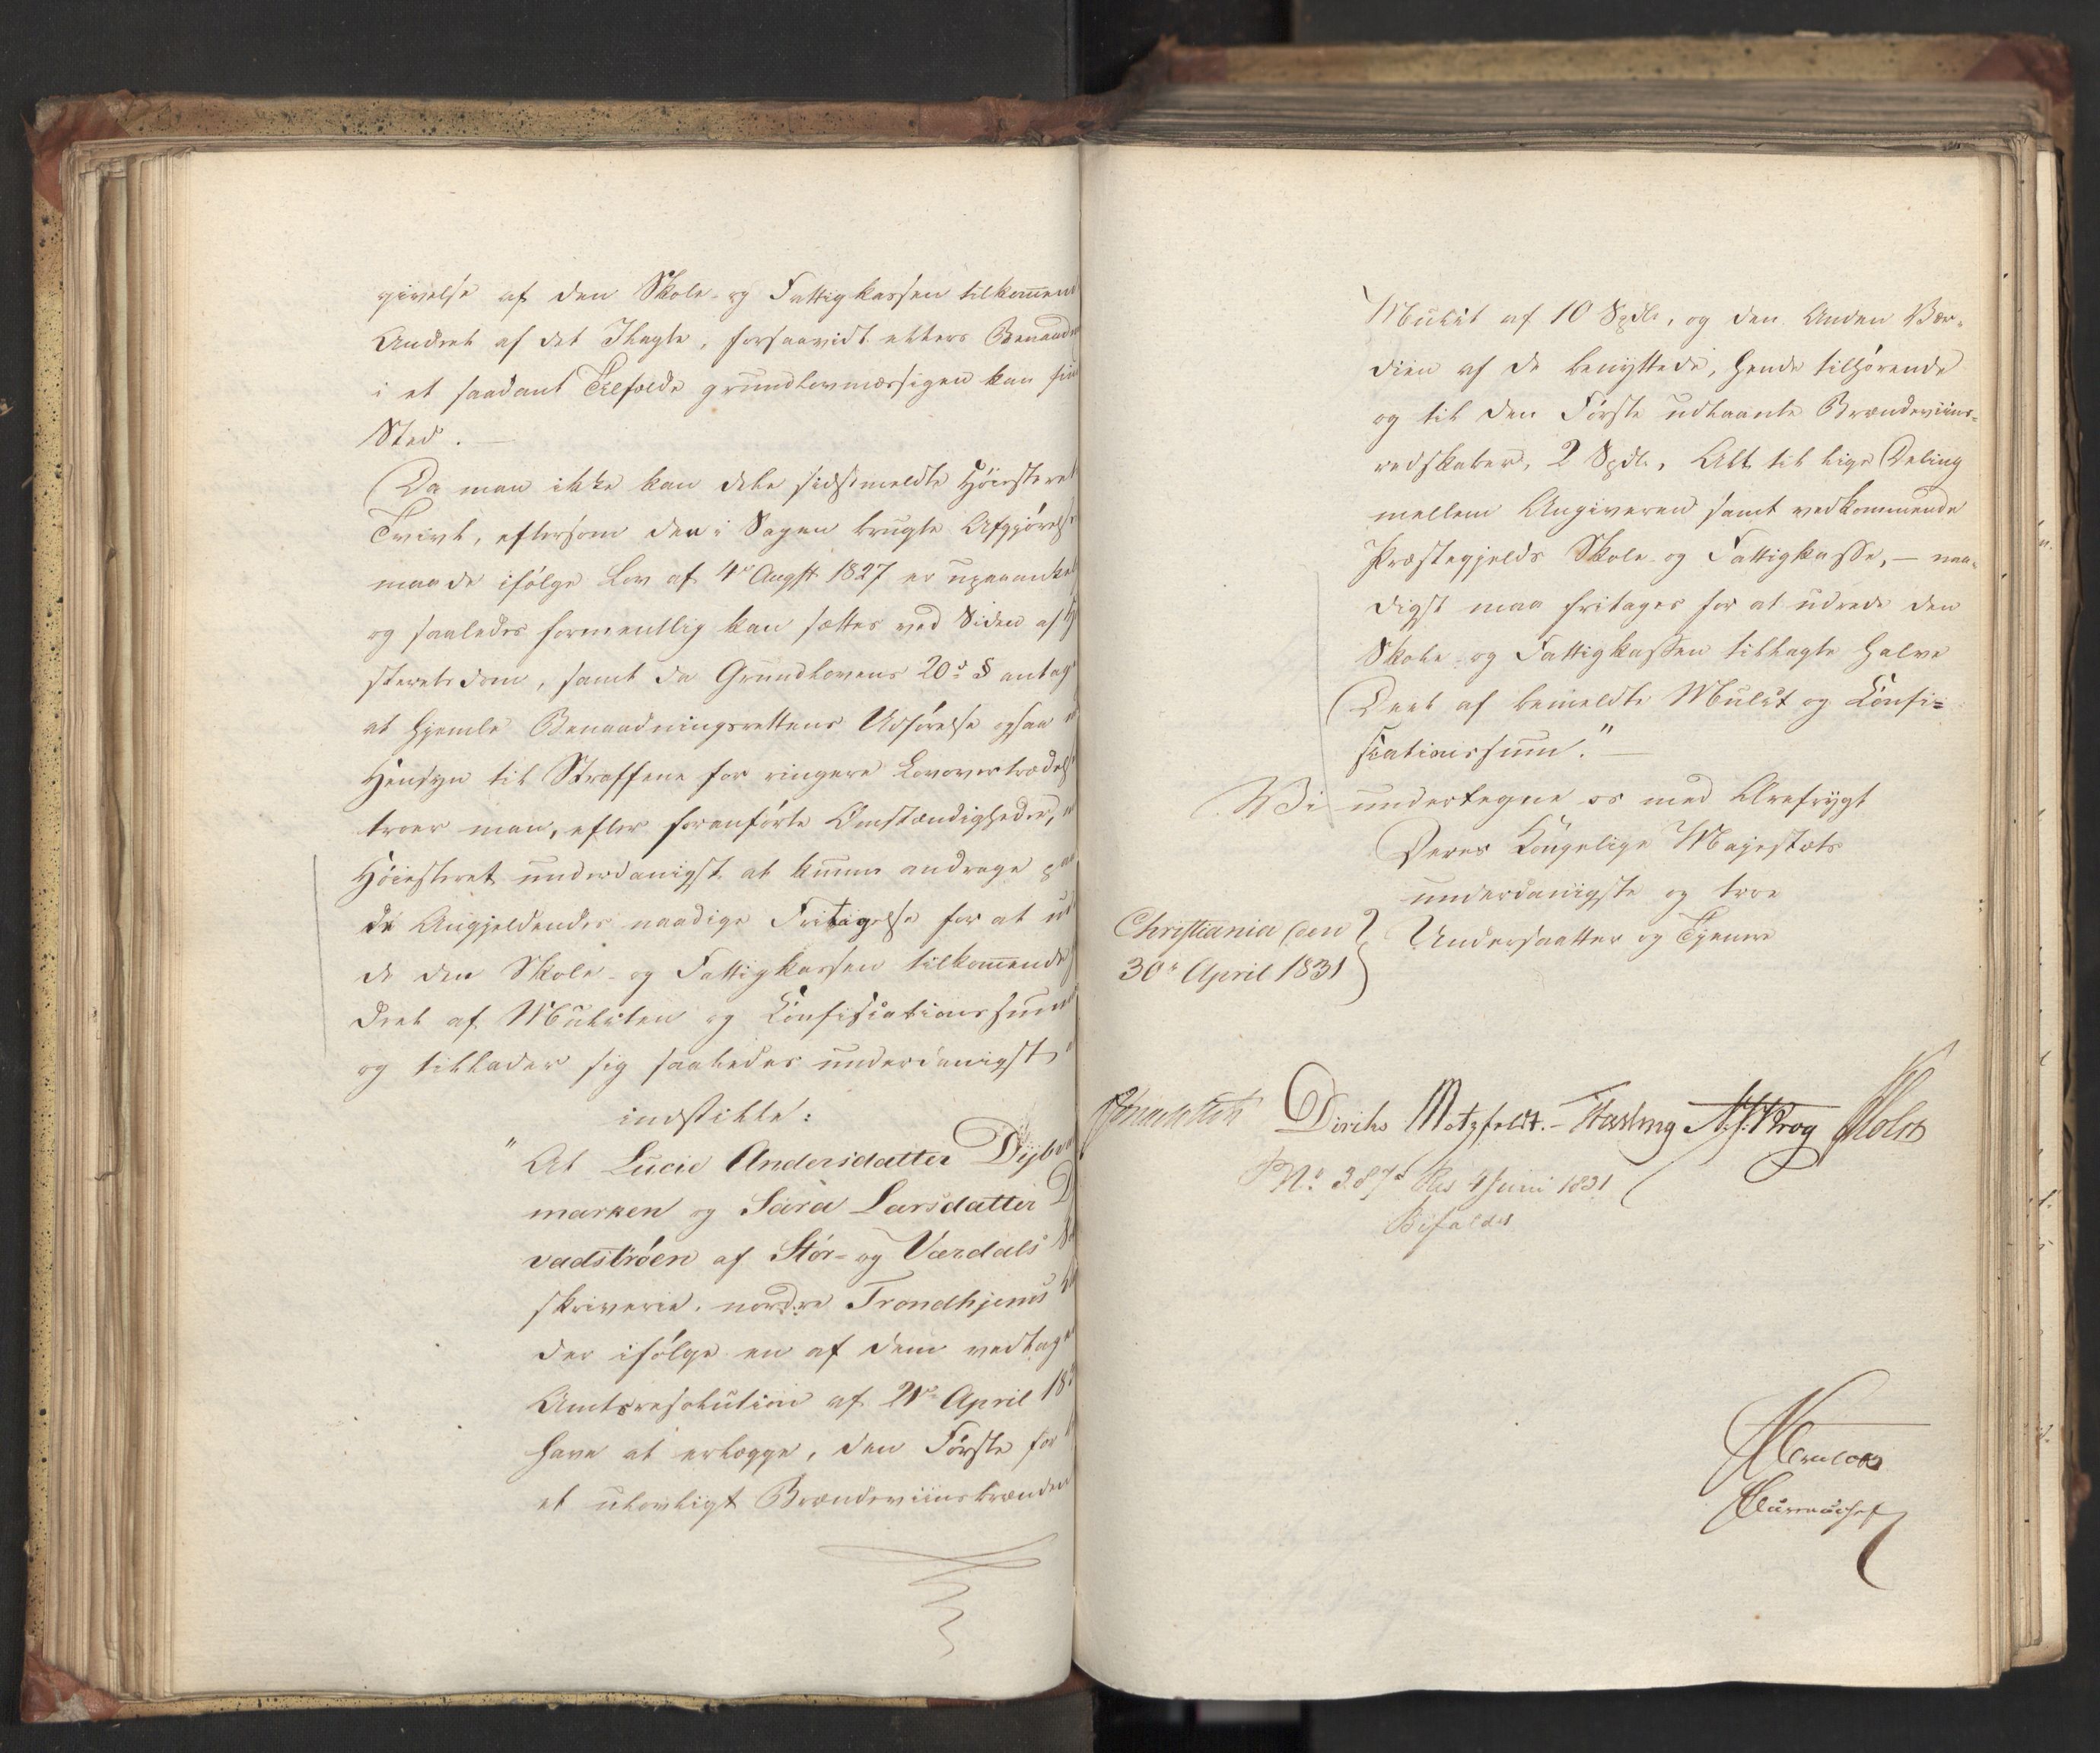 givelse af den Skole- og Fattigkassen tilkommen
Andeel af det Ilagte, forsaavidt ellers Benaadn
i et saadant Tilfælde grundlovmæssigen kan fin
Sted. —
Da man ikke kan dele sidstmeldte Höiesteret
Tvivl, eftersom den i Sagen brugte Afgjörelses
maade ifölge Lov af 4de Augst 1827 er upaaankel
og saaledes formentlig kan sættes ved Siden af Hö
steretsdom, samt da Grundlovens 20de § antag
at hjemle Benaadningsrettens Udförelse ogsaa
Hensyn til Straffene for ringere Lovovertrædels
troer man, efter foranförte Omstændigheder,
Höiesteret underdanigst at kunne andrage paa
de Angjeldendes naadige Fritagelse for at ud
de den Skole- og Fattigkassen tilkommende
Deel af Mulcten og Confiscationssum
og tillader sig saaledes underdanigst
indstille:
"At Lucie Andersdatter Dijb
marken og Sara Larsdatter
vadströen af Stör- og Værdals
skriverie, nordre Trondhjems
der ifölge en af dem vedtag
Amtsresolution af 21de April 18
have at erlægge, den Förste for
et ulovligt Brændeviinsbrænder
Mulct af 10 Spdlr, og den Anden Vær-
dien af de benyttede, hende tilhörende
og til den Förste udlaante Brændeviins-
redskaber, 2 Spdlr, Alt til lige Deling
mellem Angiveren samt vedkommende
Præstegjelds Skole- og Fattigkasse, — naa-
digst maa fritages for at udrede den
Skole- og Fattigkassen tillagte halve
Deel af bemeldte Mulct og Confi-
scationssum." —
Vi undertegne os med Ærefrygt
Deres Kongelige Majestæts
underdanigste og troe
Christiania den Undersaatter og Tjenere
30te April 1831
Diriks Motzfeldt. Fasting N. J. Krog Holst
No 387 Res 4 Juni 1831
Bifaldes